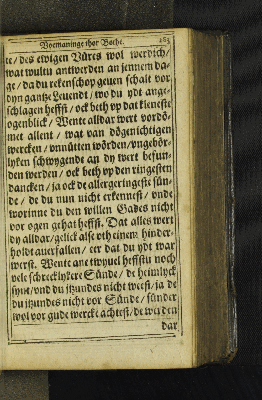 Vormaninge thor Bothe. 183
te / des ewigen Vüres wol werdich /
wat wultu antwerden an jennem da-
ge / da du rekenschop geuen schalt vor
dyn gantze Leuendt / wo du ydt ange-
schlagen heffst / ock beth vp dat kleneste
ogenblick / Wente alldar wert vordö-
met allent / wat van dögenichtigen
wercken / vnnütten wörden / vngebör-
lyken schwygende an dy wert befun-
den werden / ock beth vp den ringesten
dancken / ja ock de allergeringeste sün-
de / de du nun nicht erkennest / vnde
worinne du den willen Gades nicht
vor ogen gehat heffst. Dat alles wert
dy alldar / gelick alse vth einem hinder-
holdt auerfallen / eer dat du ydt war
werst. Wente ane twyuel heffstu noch
vele schrecklykere Sünde / de heimlyck
synt / vnd du itzundes nicht weest / ja de
du itzundes nicht vor Sünde / sünder
wol vor gude wercke achtest / de werden
dar